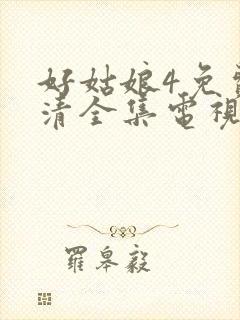 好姑娘4免費
清全集電視
羅皋毅